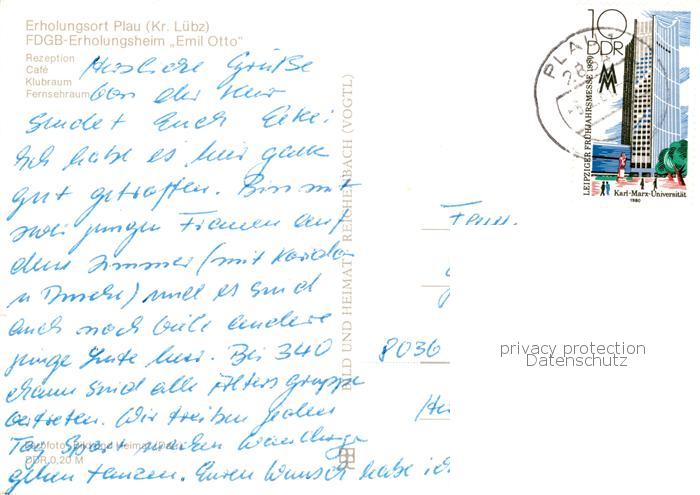 Erholungsort Plau (Kr. Lübz)
FDGB-Erholungsheim „Emil Otto"
Rezeption
Café
Klubraum
Fernsehraum
Herzliche Grüße
von der Kur
sendet Euch
Ich habe es hier ganz
gut getroffen. Bin mit
zwei jungen Frauen auf
dem Zimmer (mit
u Dusche) und es sind
auch noch viele andere
junge Leute hier. Bei 340
sind alle Altersgruppen
vertreten. Wir treiben jeden
Tag Sport, machen
gehen tanzen. Euren Wunsch habe ich
Bild und Heimat
DDR 0,20 M
BILD UND HEIMAT REICHENBACH (VOGTL)
10
DDR
LEIPZIGER FRÜHJAHRSMESSE 1980
Karl-Marx-Universität
1980
PLAU
Fam.
8036
privacy protection
Datenschutz